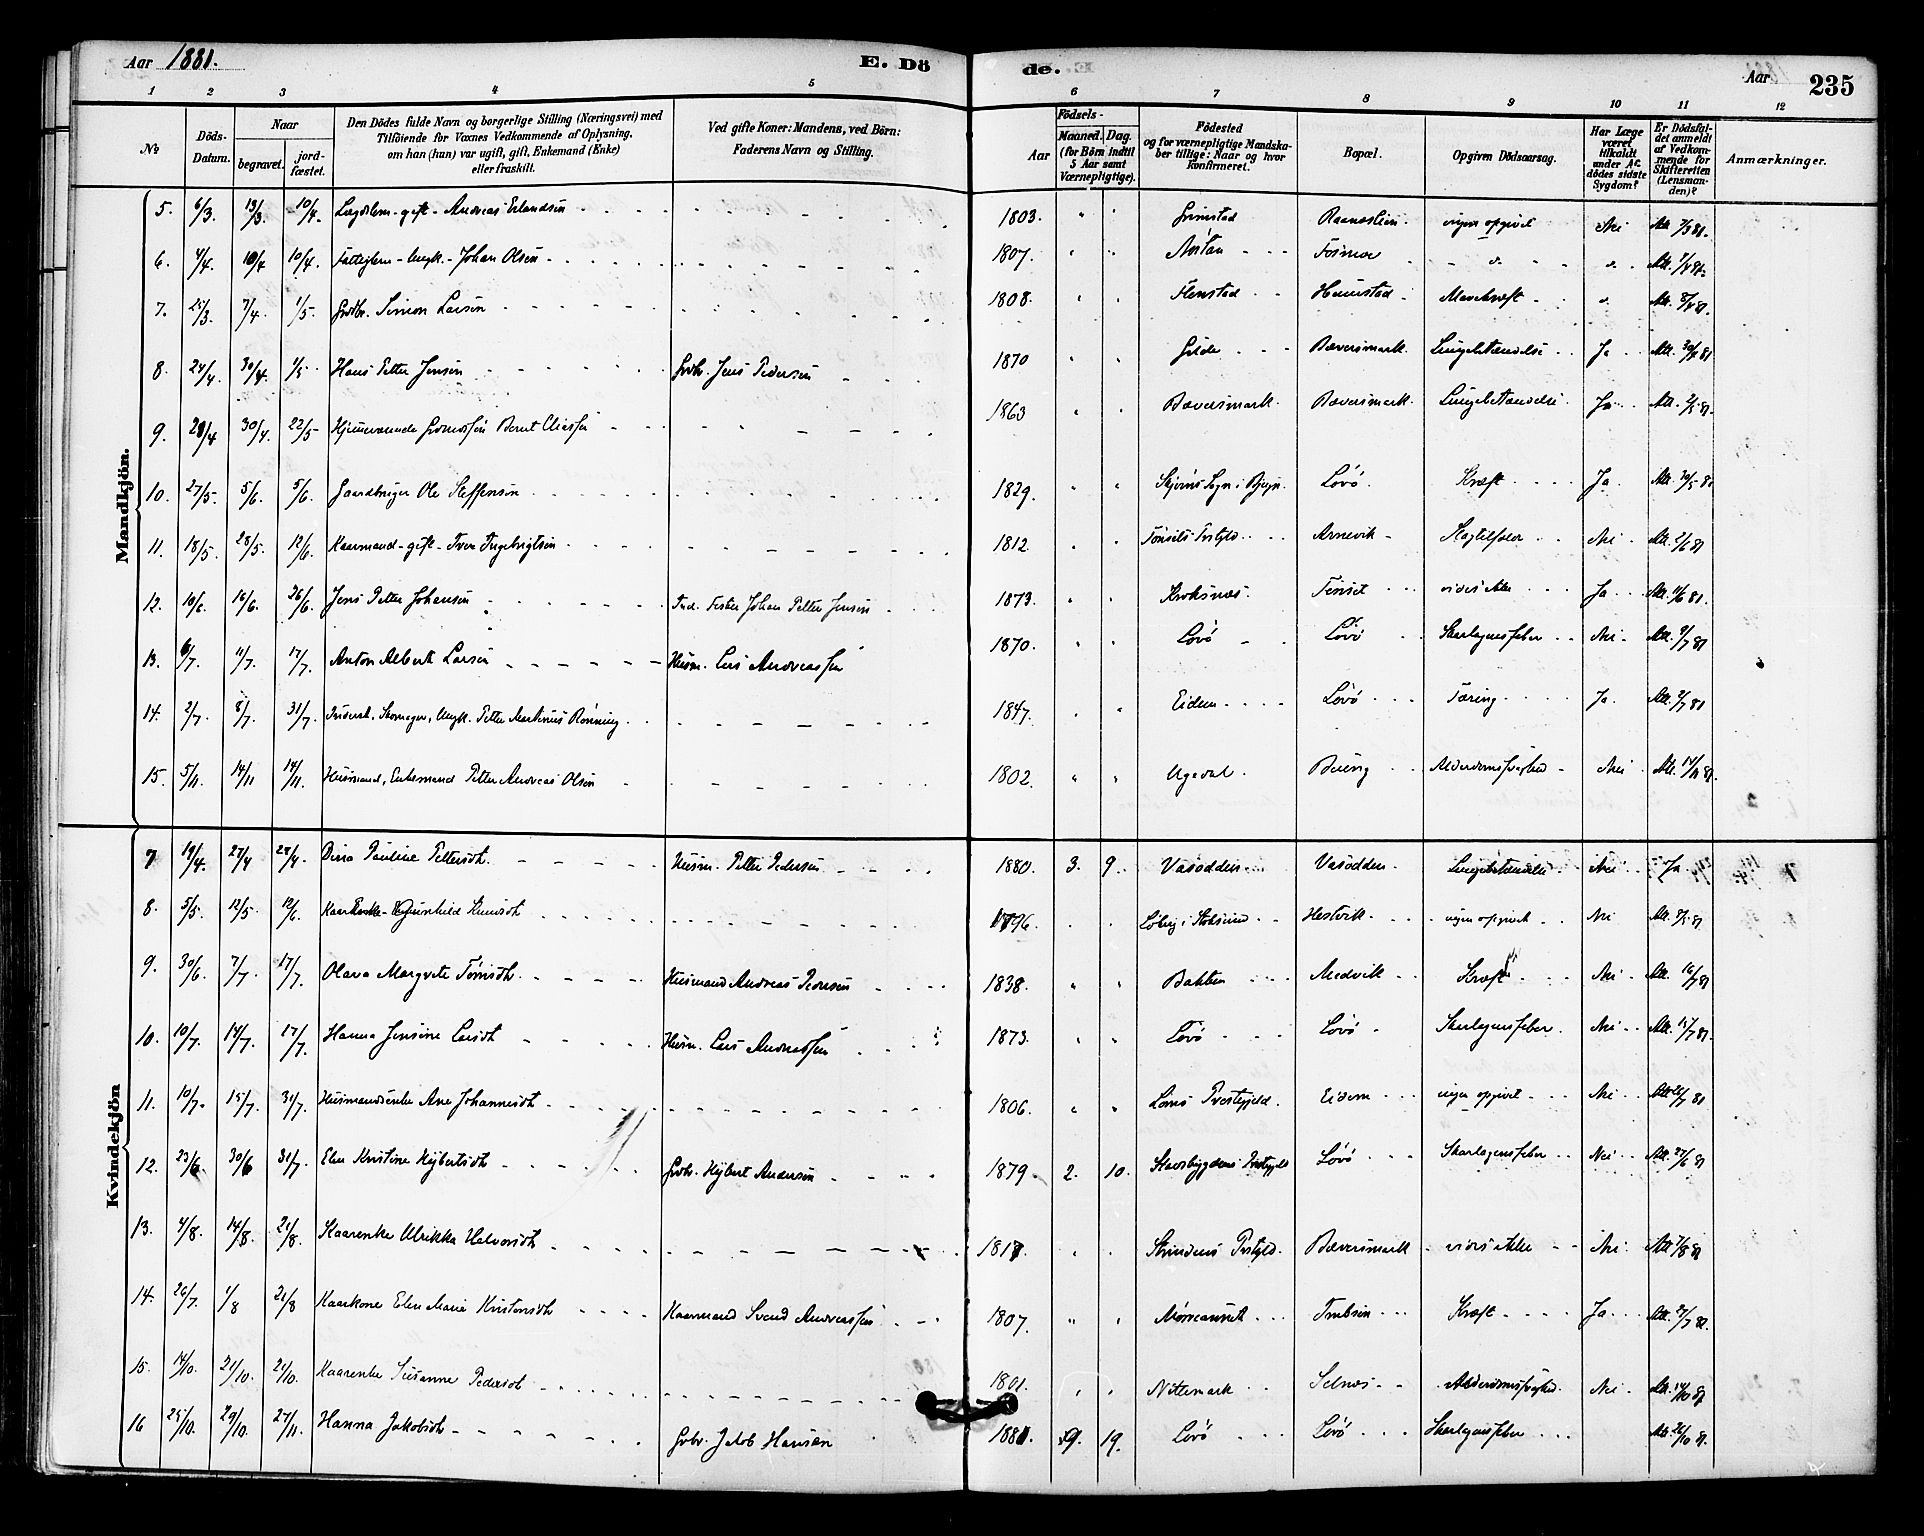 Aar 1881. E. Dö de. Aar 235
1 2 3 4 5 6 7 8 9 10 11 12
No Döds-Datum. Naar begravet. jord-fæstet. Den Dödes fulde Navn og borgerlige Stilling (Næringsvei) med Tilföiende for Voxnes Vedkommende af Oplysning, om han (hun) var ugift, gift, Enkemand (Enke) eller fraskilt. Ved gifte Koner: Mandens, ved Börn: Faderens Navn og Stilling. Födsels- Aar Maaned. Dag. (for Börn indtil 5 Aar samt Værnepligtige). Födested og for værnepligtige Mandskaber tillige: Naar og hvor konfirmeret. Bopæl. Opgiven Dödsaarsag. Har Læge været tilkaldt under Afdödes sidste Sygdom? Er Dödsfaldet anmeldt af Vedkommende for Skifteretten (Lensmanden)? Anmærkninger.
Mandkjön.
5. 6/3. 13/3. 10/4. Lægdslem - gift - Andreas Erlandsen 1803. " " Grimstad ingen opgivet Nei Att. 7/3 81.
6. 4/4. 10/4 10/4. Fattiglem - Johan Olsen 1807. " " Fosmoe Att. 7/4 81.
7. 25/3. 7/4. 1/5. Grdbr. Simon Larsen 1808. " " Flenstad Hemstad Mavekræft Att. 8/4 81.
8. 24/4. 30/4. 1/5. Hans Petter Jensen Grdbr. Jens Pedersen 1870 " " Gilde Bæversmark. Lungebetændelse Ja Att. 30/4 81
9. 28/4 30/4. 22/5. Hjemmeværende Bernt Eliassen 1863 " " Bæversmark. Bæversmark. Lungebetændelse Ja Att. 2/5 81.
10. 27/5. 5/6. 5/6. Gaardbruger Ole Steffensen 1829. " " Skjörns Sogn i Bjugn. Lövö. Kræft Ja Att. 30/5 81
11. 18/5. 28/5. 12/6. Kaarmand - gift - Iver Ingebrigtsen 1812. " " Arnevik Nei Att. 2/6 81
12. 10/6. 16/6. 26/6. Jens Petter Johansen Ind. Johan Petter Jensen 1873. " " Kroksnæs. vides ikke Ja Att. 11/6 81.
13. 6/7. 11/7. 17/7. Anton Albert Larsen Husm. Lars Andreassen 1870. " " Lövö Lövö Skarlagensfeber Nei Att. 9/7 81
14. 2/7. 8/7. 31/7. Inderst, Skomager, Petter Martinus Rönning 1847. " " Eidem Lövö Tæring Ja Att. 2/7 81
15. 5/11. 14/11 14/11. Husmand, Enkemand Petter Andreas Olsen 1802. " " Ugedal. Alderdomssvaghed Nei Att. 14/11 81.
Kvindekjön
7 19/4. 27/4 28/4. Pauline Pettersdt. Husm. Petter Pedersen 1880. 3. 9. Vasodden Vasodden Lungebetændelse Nei Ja
8. 5/5. 12/5. 12/6. Gunhild 1796. " " Hestvik ingen opgivet Nei Att. 7/5 81
9. 30/6. 7/7. 17/7. Olava Margrete Tönisdt. Husmand Andreas Pedersen 1838. " " Bakken Medvik Kræft Nei Att. 16/7 81
10. 10/7. 14/7. 17/7. Hanna Jensine Larsdt Husm. Lars Andreassen 1873. " " Lövö Lövö Skarlagensfeber Nei Att. 15/7 81.
11. 10/7. 15/7. 31/7. Husmandsenke Ane Johannesdt 1806. " " Præstegjeld. Eidem ingen opgivet Nei Att. 26/7 81
12. 23/6. 30/6 31/7. Elen Kristine Hejbertsdt Grdbr. Hejbert Andersen 1879. 2. 10. Stadsbygdens Prstgjld Lövö Skarlagensfeber Nei Att. 27/6 81
13. 4/8. 14/8. 21/8. Kaarenke Ulrikka Halvorsdt 1817 " " Strindens Prstgjld. Bæversmark vides ikke Nei Att. 7/8 81
14. 26/7. 1/8 21/8 Kaarkone Elen Marie Kristensdt Kaarmand Svend Andreassen 1807. " " Kræft Ja Att. 27/7 81.
15. 14/10. 21/10. 21/10. Kaarenke Susanne Pedersdt 1801. " " Nittemark Selnæs Alderdomssvaghed. Nei Att. 14/10 81
16 25/10. 29/10. 27/11. Hanna Jakobsdt Grdbr. Jakob Hansen 1881. 9. 19. Lövö Lövö Skarlagensfeber Att. 26/10 81.